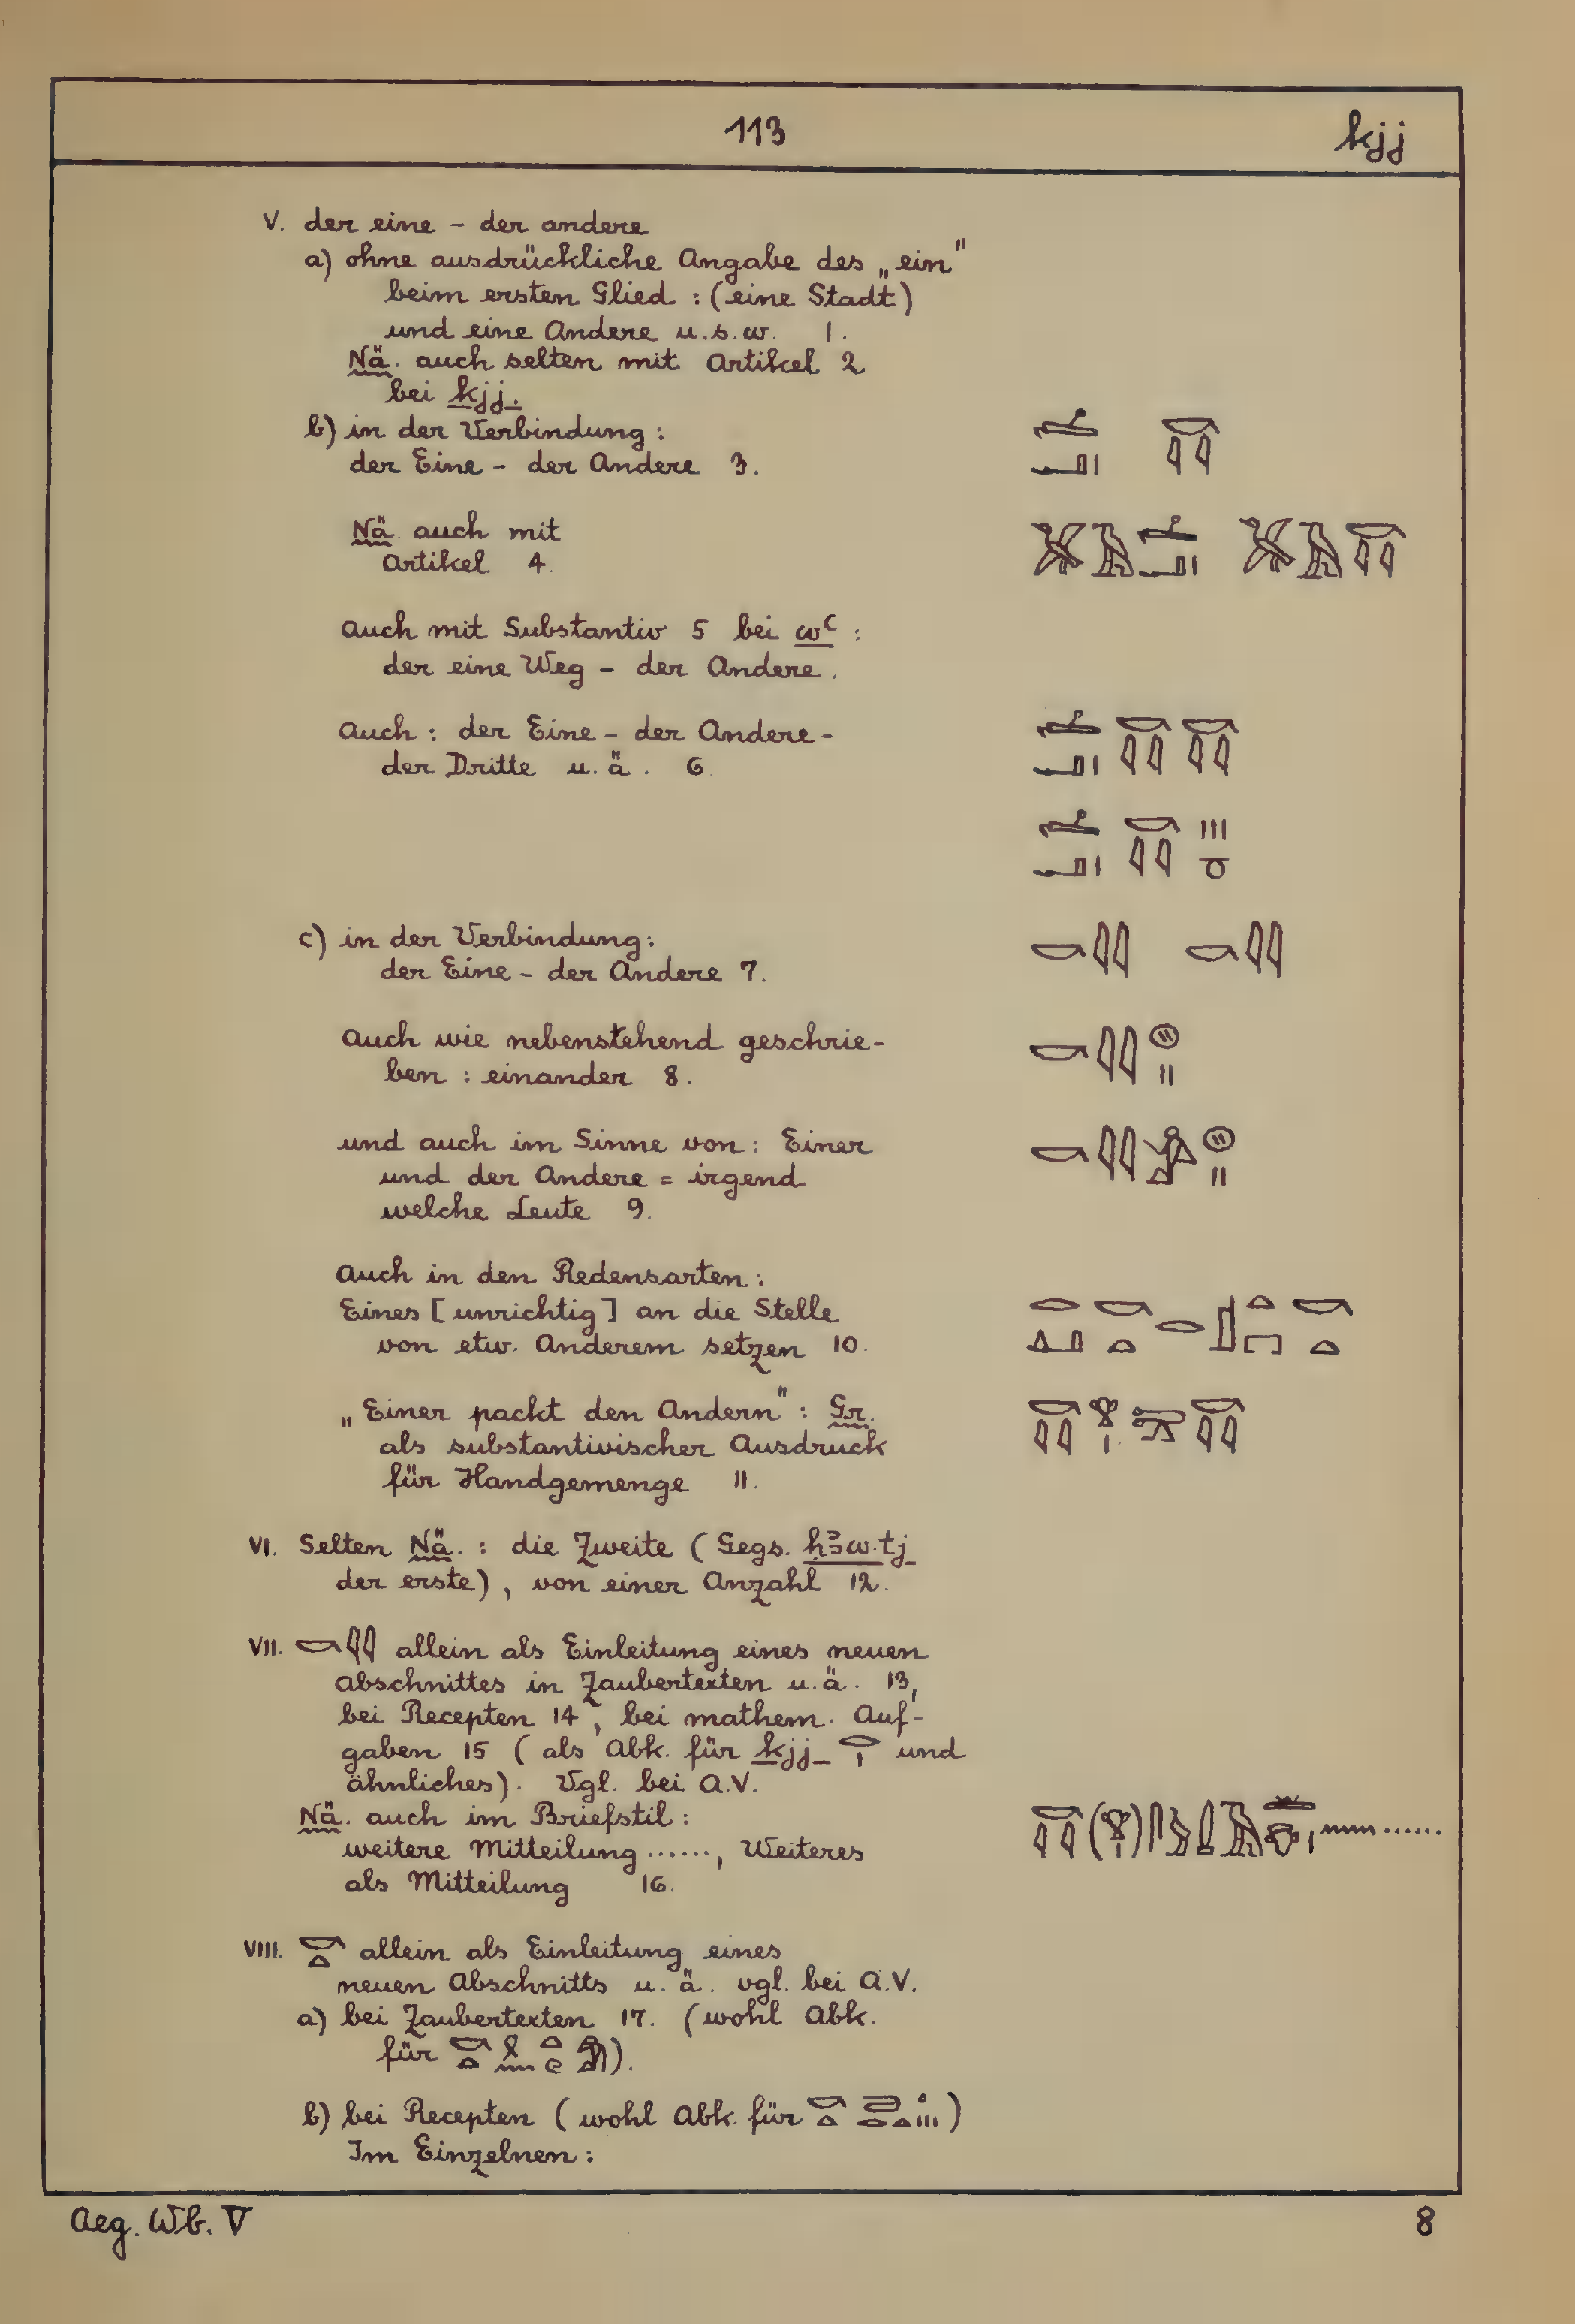 113 kjj
V. der eine – der andere
a) ohne ausdrückliche Angabe des „ein"
beim ersten Glied : (eine Stadt)
und eine Andere u.s.w. 1.
Nä. auch selten mit Artikel 2
bei kjj.
b) in der Verbindung :
der Eine – der Andere 3.
Nä. auch mit
Artikel 4.
Auch mit Substantiv 5 bei wꜥ :
der eine Weg – der Andere.
Auch : der Eine – der Andere –
der Dritte u. ä. 6.
c) in der Verbindung:
der Eine – der Andere 7.
Auch wie nebenstehend geschrie-
ben : einander 8.
und auch im Sinne von : Einer
und der Andere = irgend
welche Leute 9.
Auch in den Redensarten :
Eines [unrichtig] an die Stelle
von etw. Anderem setzen 10.
„Einer packt den Andern" : Gr.
als substantivischer Ausdruck
für Handgemenge 11.
VI. Selten Nä. : die Zweite (Gegs. ḥꜣw.tj
der erste), von einer Anzahl 12.
VII. allein als Einleitung eines neuen
Abschnittes in Zaubertexten u. ä. 13,
bei Recepten 14, bei mathem. Auf-
gaben 15 (als Abk. für kjj und
ähnliches). Vgl. bei A.V.
Nä. auch im Briefstil :
weitere Mitteilung ......, Weiteres
als Mitteilung 16.
VIII. allein als Einleitung eines
neuen Abschnitts u. ä. vgl. bei A.V.
a) bei Zaubertexten 17. (wohl Abk.
für ).
b) bei Recepten (wohl Abk. für )
Im Einzelnen :
Aeg. Wb. V 8